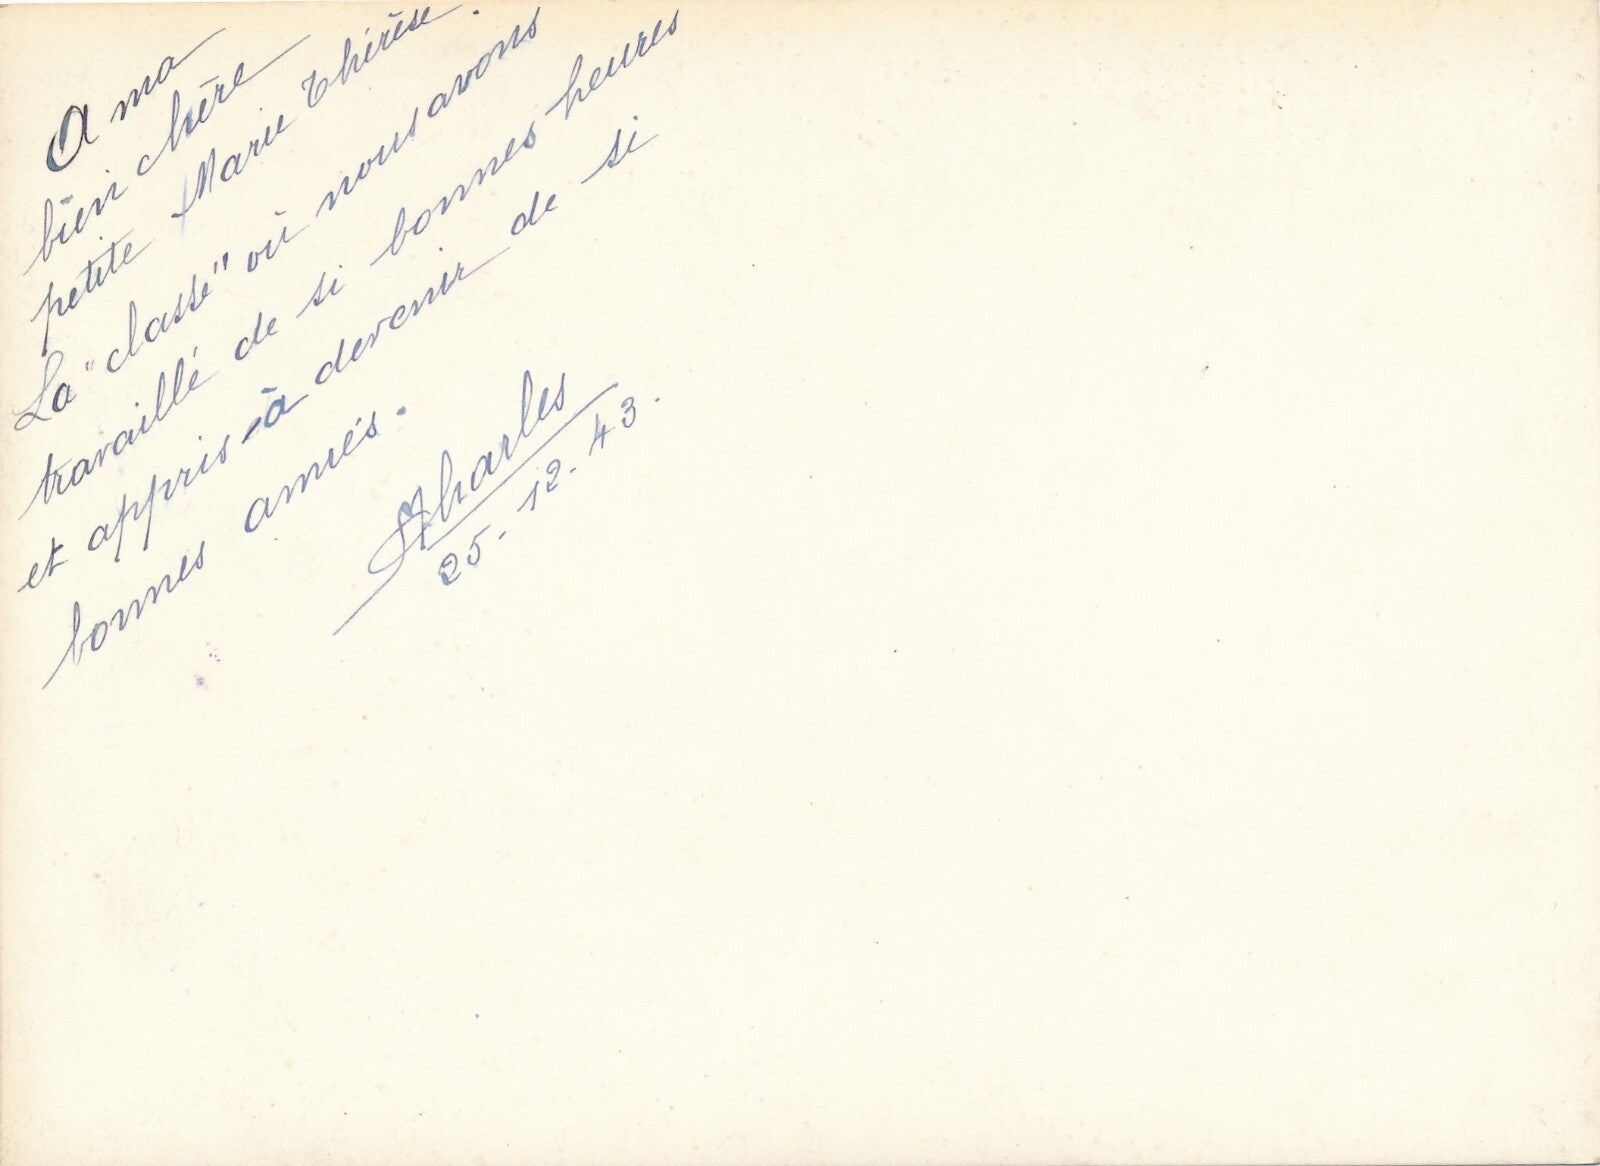 A ma
bien chère
petite Marie Thérèse.
La "classe" où nous avons
travaillé de si bonnes heures
et appris à devenir de si
bonnes amies.
Charles
25-12-43.